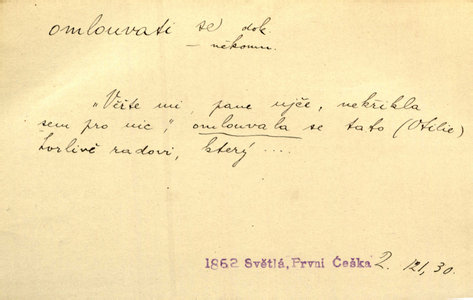 omlouvati se dok.
– někomu.
„Věřte mi, pane ujče, nekřikla
sem pro nic," omlouvala se tato (Otilie)
horlivě radovi, který ....
1862 Světlá, První Češka 2. 121,30.